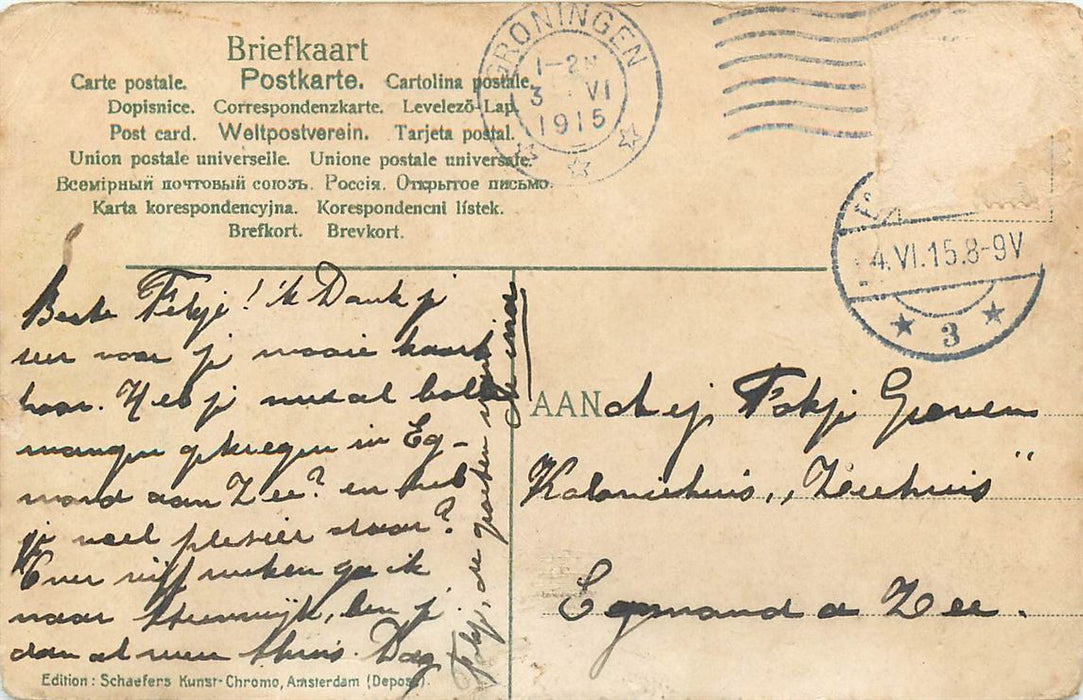 Briefkaart
Carte postale. Postkarte. Cartolina postale.
Dopisnice. Correspondenzkarte. Levelező-Lap.
Post card. Weltpostverein. Tarjeta postal.
Union postale universelle. Unione postale universale.
Всемірный почтовый союзъ. Россія. Открытое письмо.
Karta korespondencyjna. Korespondencni lístek.
Brefkort. Brevkort.
GRONINGEN
1-2N
3 VI
1915
4.VI.15.8-9V
3
Beste Fokje! 'k Dank je
zeer voor je mooie kaart
hoor. Heb je nu al bolle
wangen gekregen in Eg-
mond aan Zee? en heb
je veel plesier daar?
Over vijf weken ga ik
naar Steenwijk, ben je
dan al weer thuis. Dag
Fokje, de groeten van
AAN
Mej Fokje Groven
Koloniehuis „Zeehuis"
Egmond a Zee.
Edition: Schaefers Kunst-Chromo, Amsterdam (Depose).